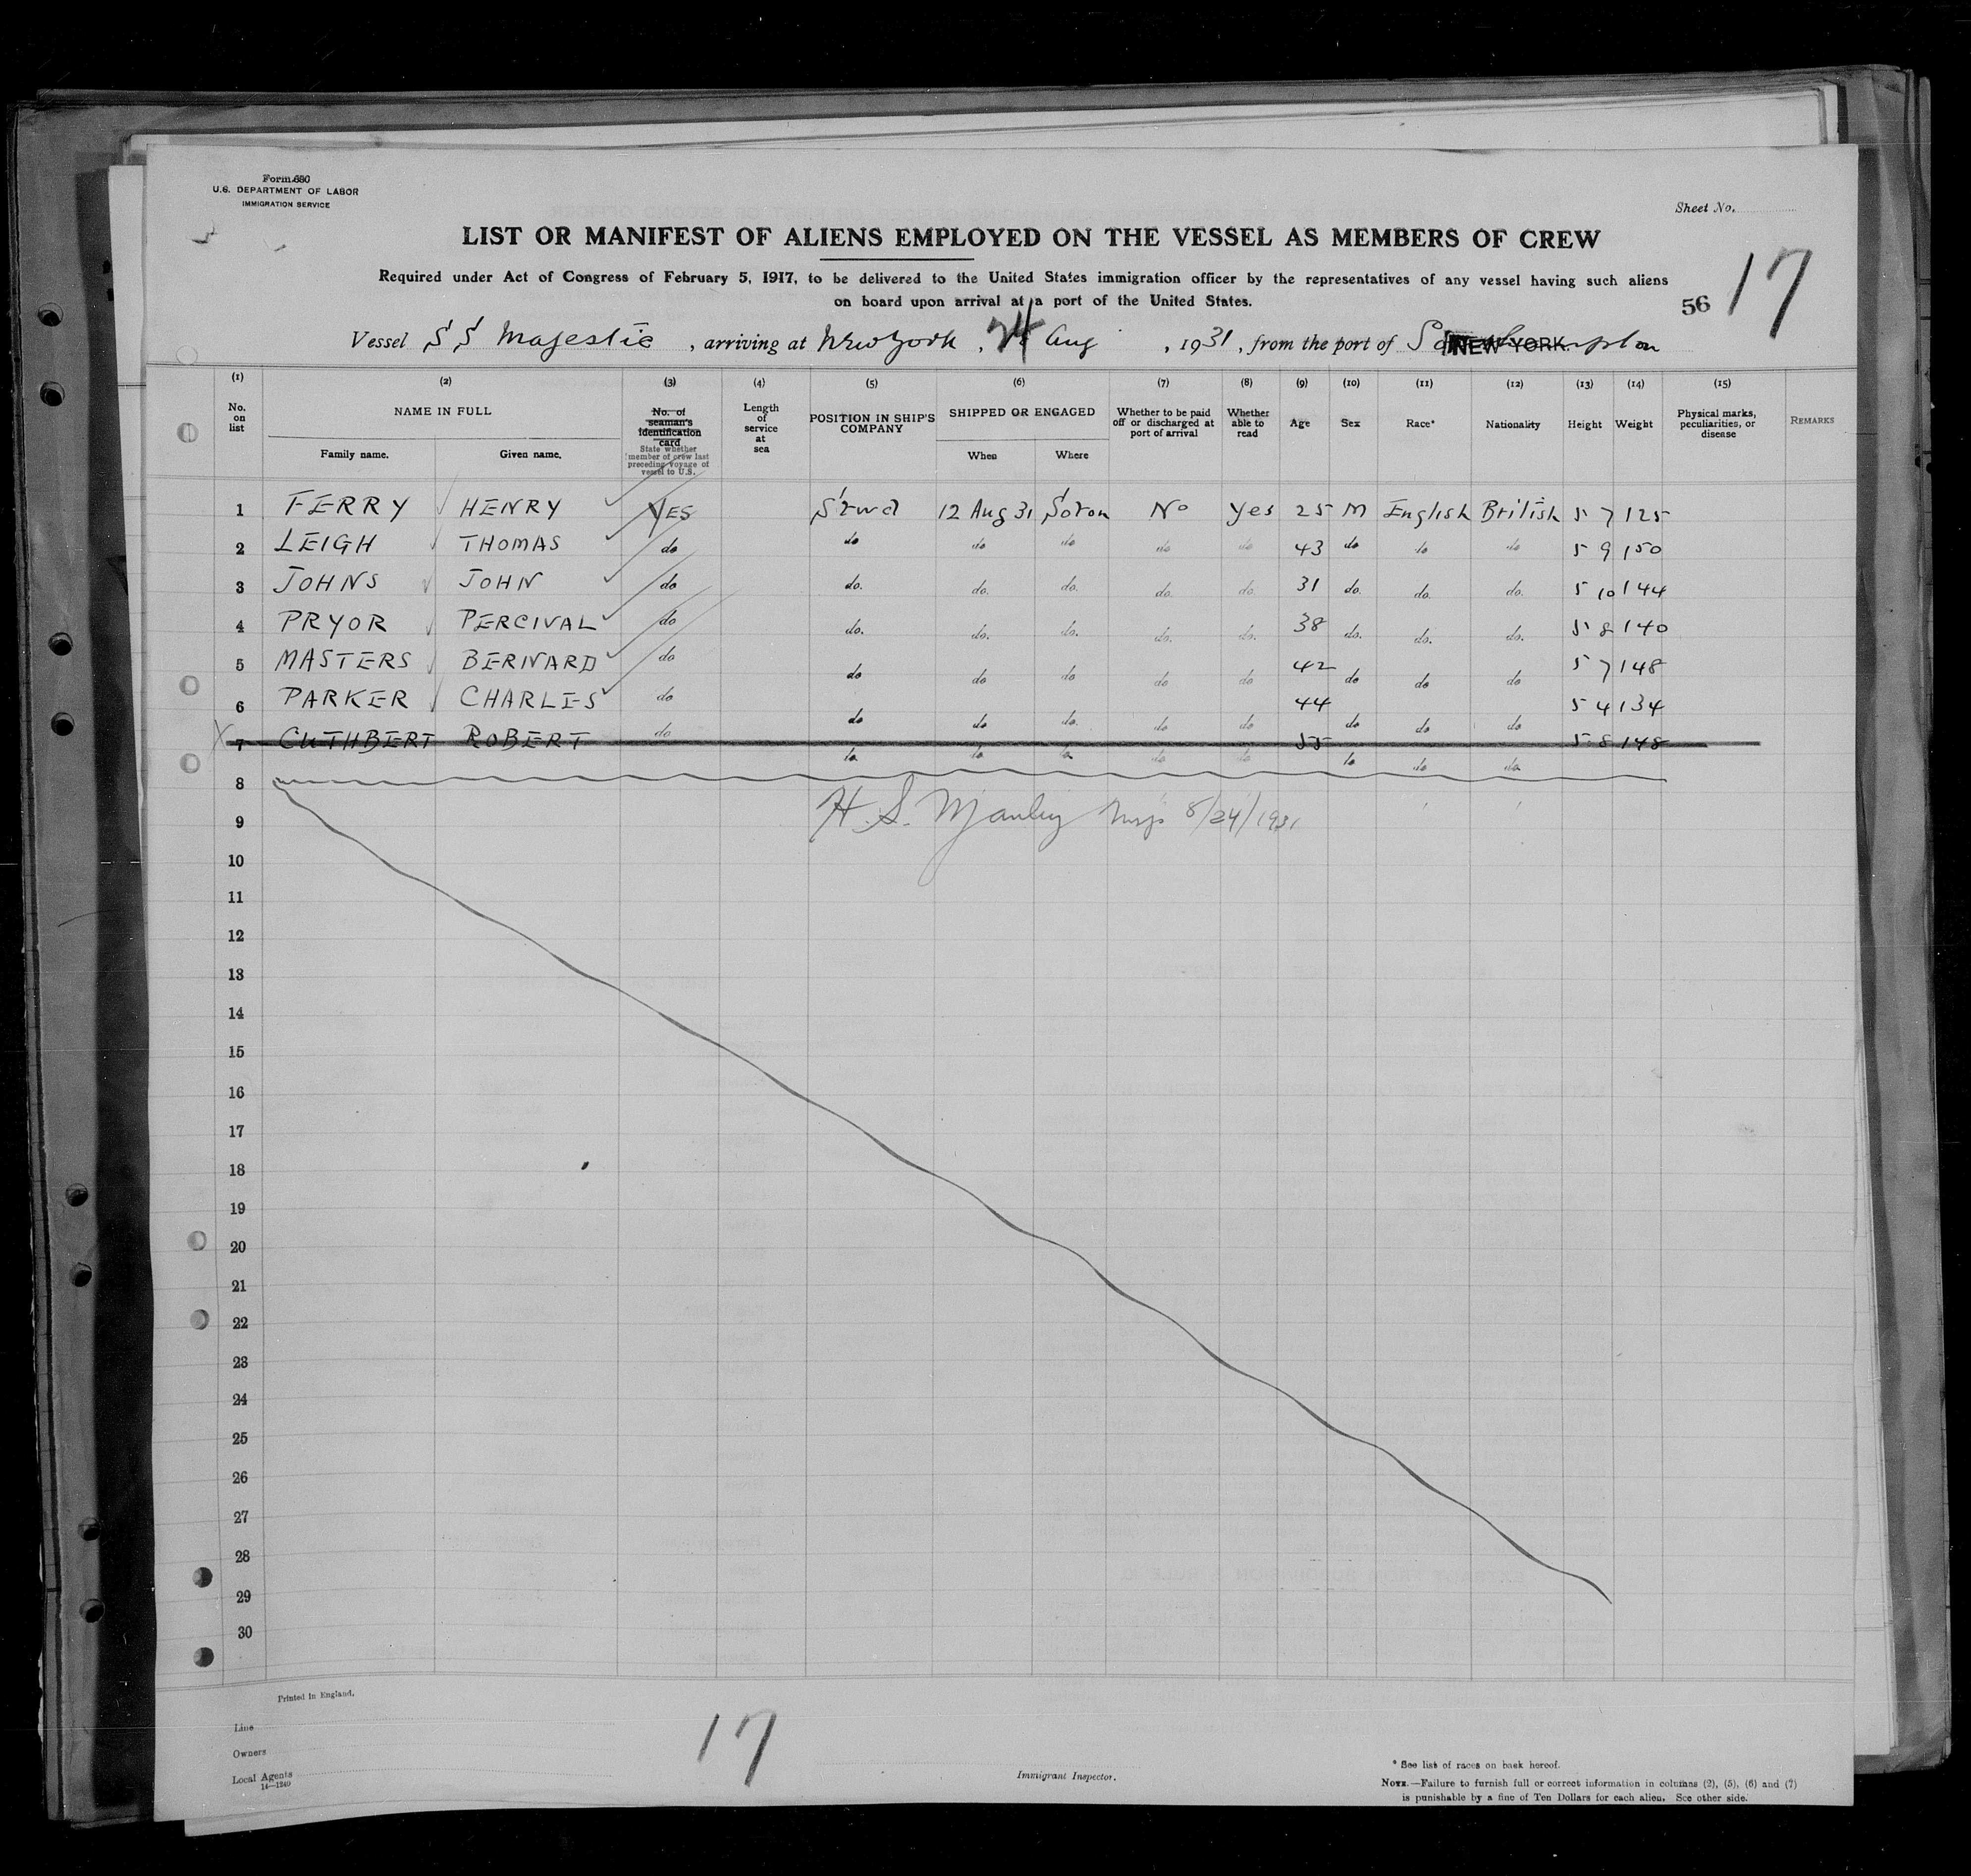 Form 680
U.S. DEPARTMENT OF LABOR
IMMIGRATION SERVICE
Sheet No.
LIST OR MANIFEST OF ALIENS EMPLOYED ON THE VESSEL AS MEMBERS OF CREW
Required under Act of Congress of February 5, 1917, to be delivered to the United States immigration officer by the representatives of any vessel having such aliens
on board upon arrival at a port of the United States.
56 17
Vessel SS Majestic, arriving at New York, 24 Aug, 1931, from the port of Southampton NEW YORK.
(1) (2) (3) (4) (5) (6) (7) (8) (9) (10) (11) (12) (13) (14) (15)
No. on list NAME IN FULL Family name. Given name. No. of seaman's identification card State whether member of crew last preceding voyage of vessel to U.S. Length of service at sea POSITION IN SHIP'S COMPANY SHIPPED OR ENGAGED When Where Whether to be paid off or discharged at port of arrival Whether able to read Age Sex Race* Nationality Height Weight Physical marks, peculiarities, or disease REMARKS
1 FERRY HENRY YES Stwd 12 Aug 31 Soton No Yes 25 M English British 5 7 125
2 LEIGH THOMAS do do do do do do 43 do do do 5 9 150
3 JOHNS JOHN do do. do. do. do. do. 31 do. do. do. 5 10 144
4 PRYOR PERCIVAL do do. do. do. do. do. 38 do. do. do. 5 8 140
5 MASTERS BERNARD do do do do do do 42 do do do 5 7 148
6 PARKER CHARLES do do do do. do do 44 do do do 5 4 134
X 7 CUTHBERT ROBERT do do do do do do 55 do do do 5 8 148
8
H. S. Manley Insp 8/24/1931
9
10
11
12
13
14
15
16
17
18
19
20
21
22
23
24
25
26
27
28
29
30
Printed in England.
Line
Owners
Local Agents
14—1240
17
Immigrant Inspector.
* See list of races on back hereof.
NOTE.—Failure to furnish full or correct information in columns (2), (5), (6) and (7)
is punishable by a fine of Ten Dollars for each alien. See other side.